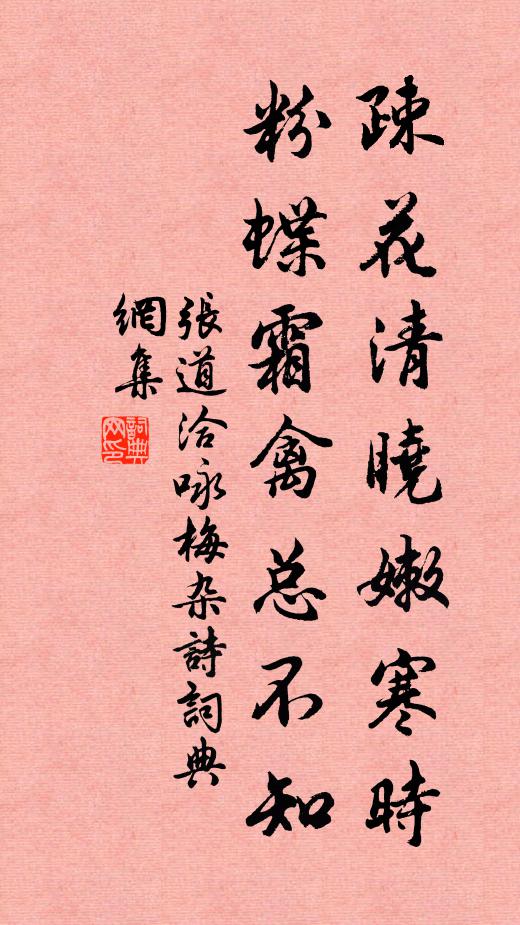 疎花清曉嫩寒時
粉蝶霜禽总不知
張道洽咏梅杂詩詞典
網集
詞典
网印